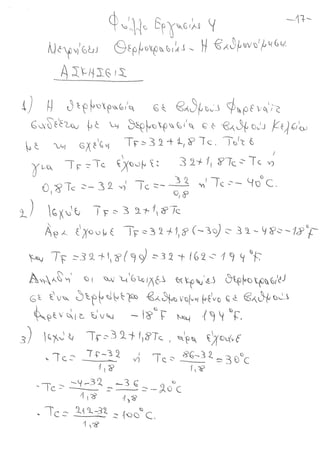 Φύλλο Εργασίας 4 -17-
Μετρήσεις Θερμοκρασίας - Η Βαθμονόμηση
ΑΣΚΗΣΕΙΣ
1) Η θερμοκρασία σε βαθμούς Φαρενάιτ
συνδέεται με τη θερμοκρασία σε βαθμούς Κελσίου
με τη σχέση TF=32+1,8Tc. Τότε
για TF=Tc έχουμε: 32+1,8Tc=Tc ή
0,8Tc=-32 ή Tc=-32/0,8 ή Tc=-40°C.
2) Ισχύει TF=32+1,8Tc
Άρα έχουμε TF=32+1,8(-30)=32-48=-18°F
και TF=32+1,8(90)=32+162=194°F.
Δηλαδή οι αντίστοιχες ακραίες θερμοκρασίες
σε ένα θερμόμετρο βαθμονομημένο σε βαθμούς
Φαρενάιτ είναι -18°F και 194°F.
3) Ισχύει TF=32+1,8Tc, άρα έχουμε
• Tc=TF-32/1,8 ή Tc=86-32/1,8=30°C
• Tc=-4-32/1,8=-36/1,8=-20°C
• Tc=212-32/1,8=100°C.